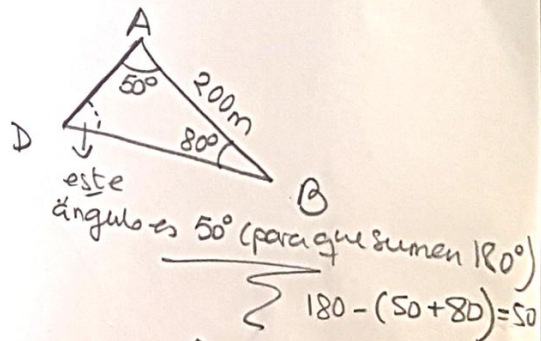 A
50°
200m
D
80°
B
este
ángulo es 50° (para que sumen 180°)
180 - (50 + 80) = 50